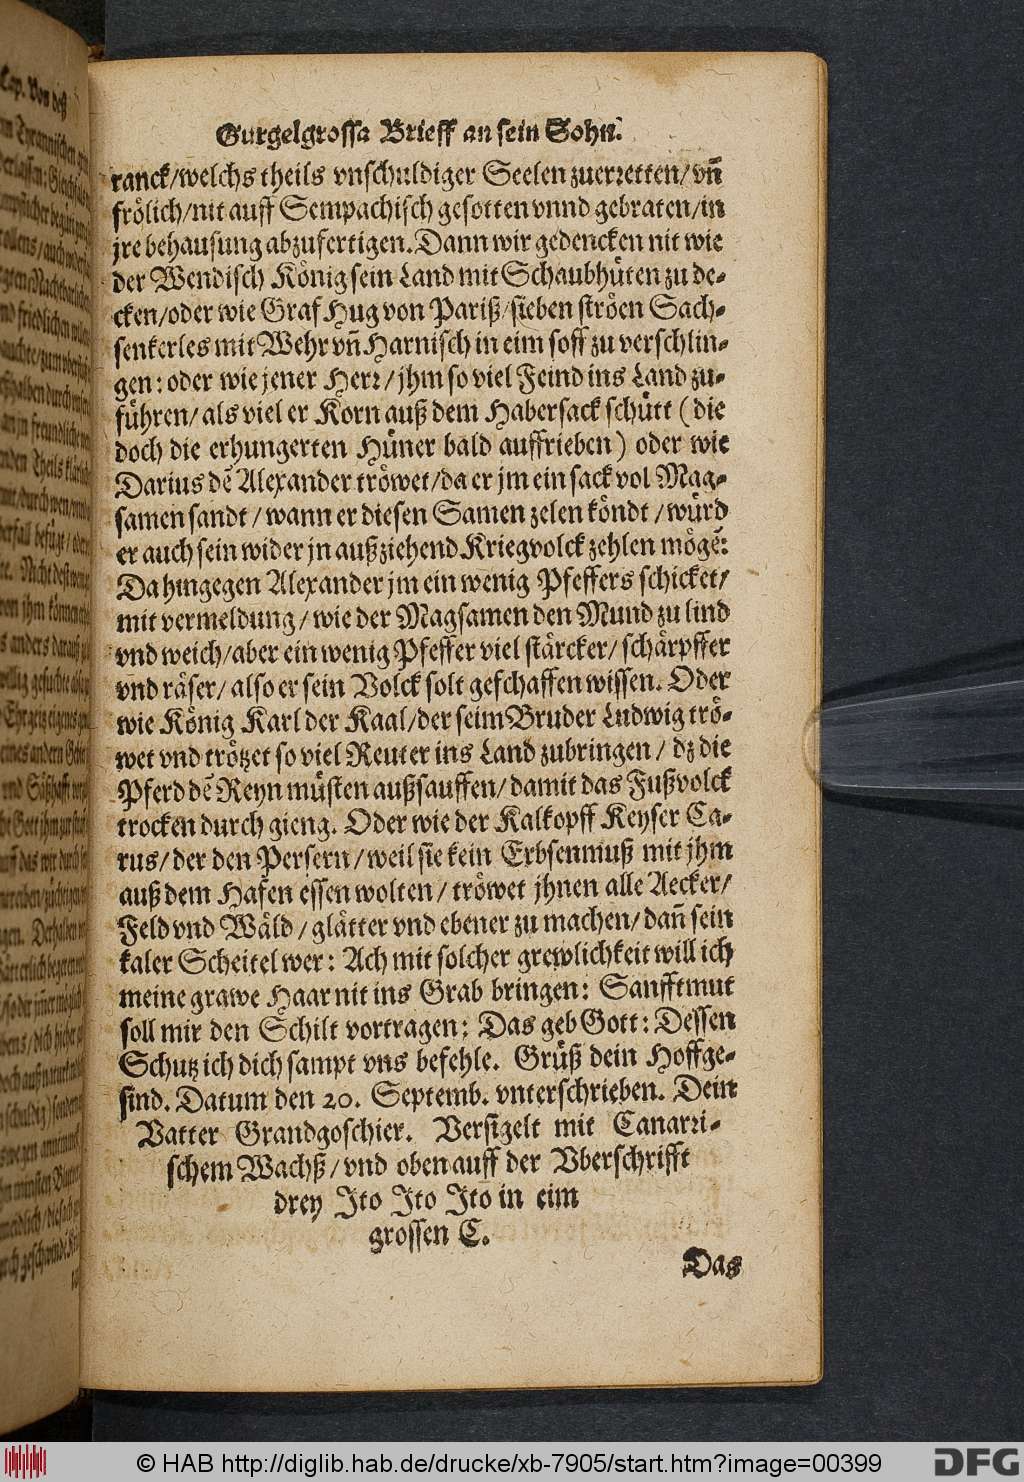 Gurgelgrossa Brieff an sein Sohn.
ranck/welchs theils vnschuldiger Seelen zuerꝛetten/vñ
frölich/nit auff Sempachisch gesotten vnnd gebraten/in
jre behausung abzufertigen. Dann wir gedencken nit wie
der Wendisch König sein Land mit Schaubhüten zu de-
cken/oder wie Graf Hug von Pariß/sieben ströen Sach-
senkerles mit Wehr vñ Harnisch in eim soff zu verschlin-
gen: oder wie jener Herꝛ/jhm so viel Feind ins Land zu-
führen/als viel er Korn auß dem Habersack schütt (die
doch die erhungerten Hüner bald auffrieben) oder wie
Darius dē Alexander tröwet/da er jm ein sack vol Mag-
samen sandt/wann er diesen Samen zelen köndt/würd
er auch sein wider jn außziehend Kriegvolck zehlen mögē:
Da hingegen Alexander jm ein wenig Pfeffers schicket/
mit vermeldung/wie der Magsamen den Mund zu lind
vnd weich/aber ein wenig Pfeffer viel stärcker/schärpffer
vnd räser/also er sein Volck solt geschaffen wissen. Oder
wie König Karl der Kaal/der seim Bruder Ludwig trö-
wet vnd trötzet so viel Reuter ins Land zubringen/dz die
Pferd dē Reyn müsten außsauffen/damit das Fußvolck
trocken durch gieng. Oder wie der Kalkopff Keyser Ca-
rus/der den Persern/weil sie kein Erbsenmuß mit jhm
auß dem Hafen essen wolten/tröwet jhnen alle Aecker/
Feld vnd Wäld/glätter vnd ebener zu machen/dañ sein
kaler Scheitel wer: Ach mit solcher grewlichkeit will ich
meine grawe Haar nit ins Grab bringen: Sanfftmut
soll mir den Schilt vortragen: Das geb Gott: Dessen
Schutz ich dich sampt vns befehle. Grüß dein Hoffge-
sind. Datum den 20. Septemb. vnterschrieben. Dein
Vatter Grandgoschier. Versigelt mit Canarꝛi-
schem Wachß/vnd oben auff der Vberschrifft
drey Ito Ito Ito in eim
grossen C.
Das
© HAB http://diglib.hab.de/drucke/xb-7905/start.htm?image=00399
DFG